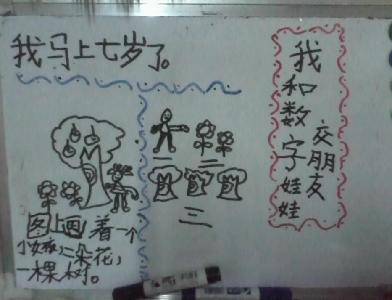 我马上七岁了。
我和数字娃娃
交朋友
一
二
三
图上画着一个
小女孩,二朵花,
一棵树。